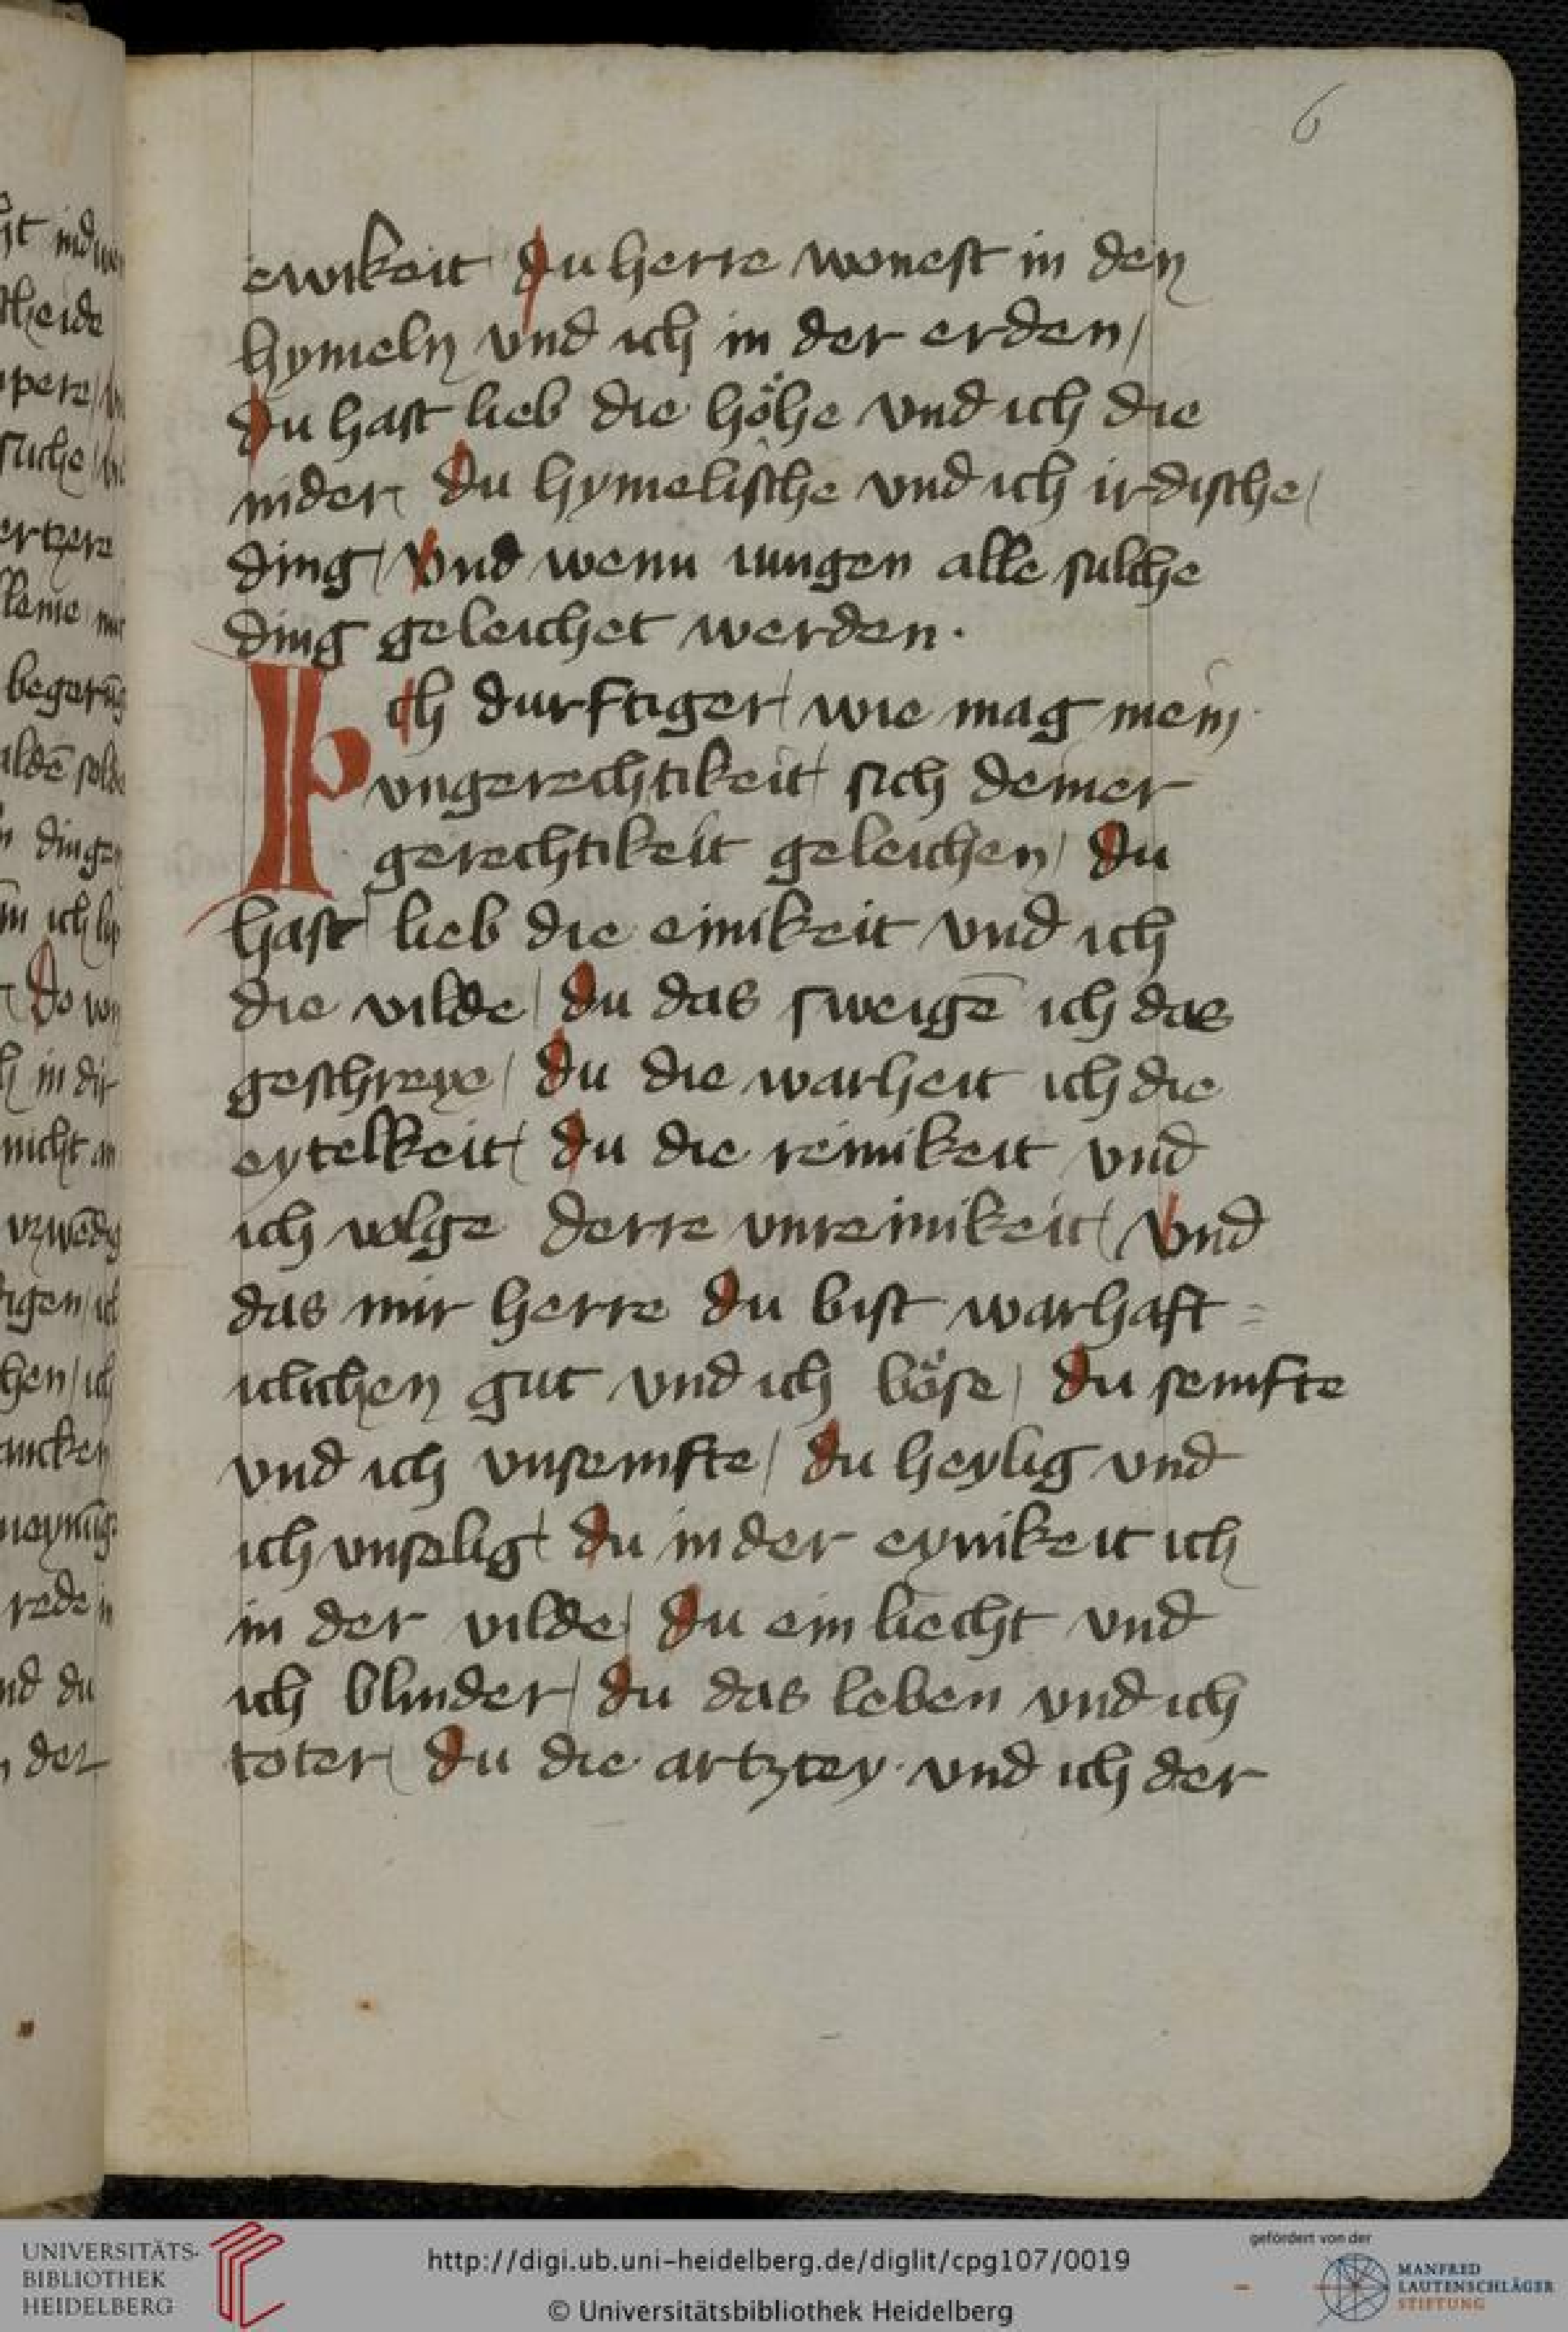 6
ewikeit du herre wonest in den
hymeln vnd ich in der erden /
du hast lieb die höhe vnd ich die
nider / du hymelische vnd ich irdische /
ding / Vnd wenn mugen alle sulche
ding geleichet werden ·
Ich durftiger / wie mag mein
vngerechtikeit / sich deiner
gerechtikeit geleichen / du
hast lieb die einikeit vnd ich
die vilde / du das sweigē ich das
geschreye / du die warheit ich die
eytelkeit / du die reinikeit vnd
ich volge derre vnreinikeit / Vnd
das mir herre du bist warhaft=
iclichen gut vnd ich böse / du semfte
vnd ich vnsemfte / du heylig vnd
ich vnselig / du in der eynikeit ich
in der vilde / du ein liecht vnd
ich blinder / du das leben vnd ich
toter / du die artztey · vnd ich der
UNIVERSITÄTS-
BIBLIOTHEK
HEIDELBERG
http://digi.ub.uni-heidelberg.de/diglit/cpg107/0019
© Universitätsbibliothek Heidelberg
gefördert von der
MANFRED
LAUTENSCHLÄGER
STIFTUNG